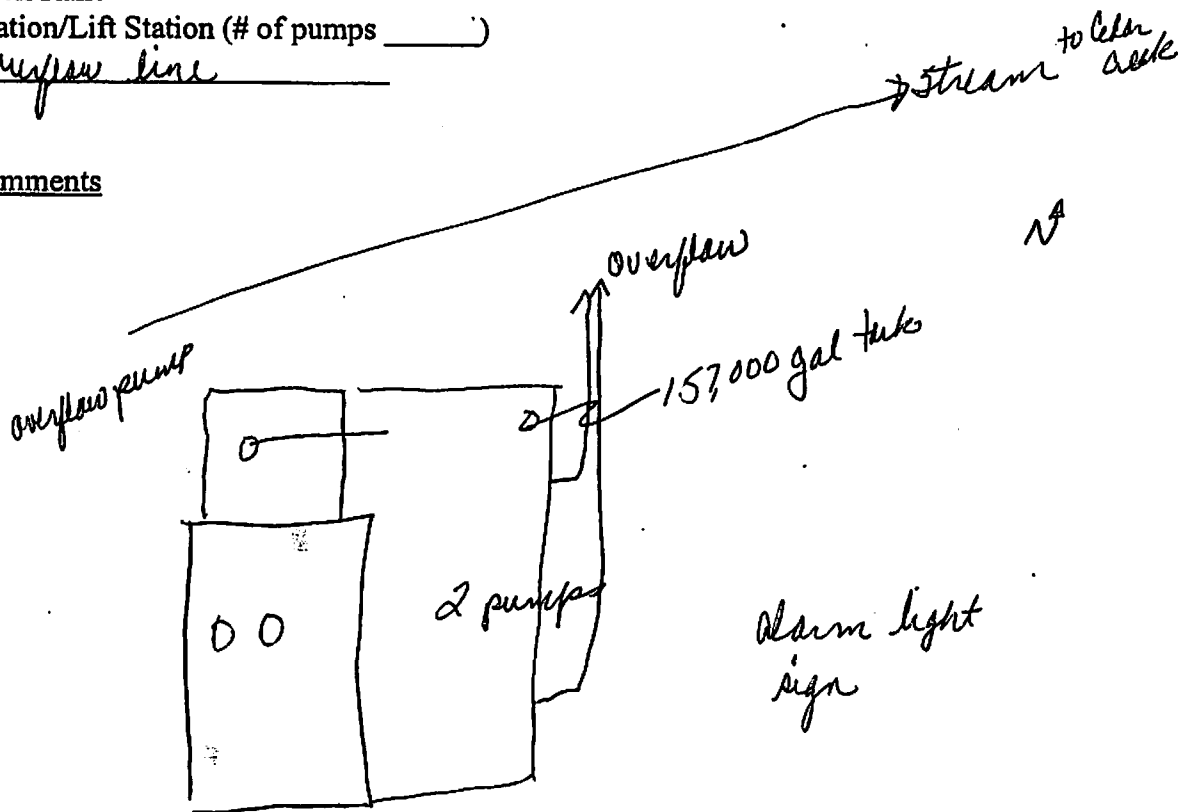 ation/Lift Station (# of pumps ______)
overflow line
to Cedar
Creek
Stream
omments
N
overflow
overflow pump
157,000 gal tank
2 pumps
alarm light
sign